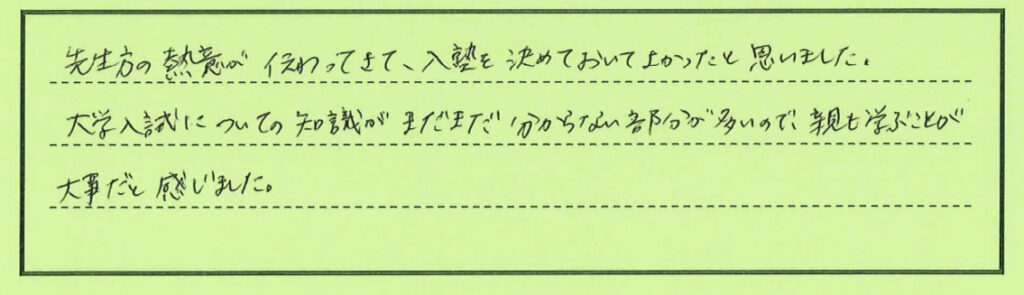 先生方の熱意が伝わってきて、入塾を決めておいてよかったと思いました。
大学入試についての知識がまだまだ分からない部分が多いので、親も学ぶことが
大事だと感じました。